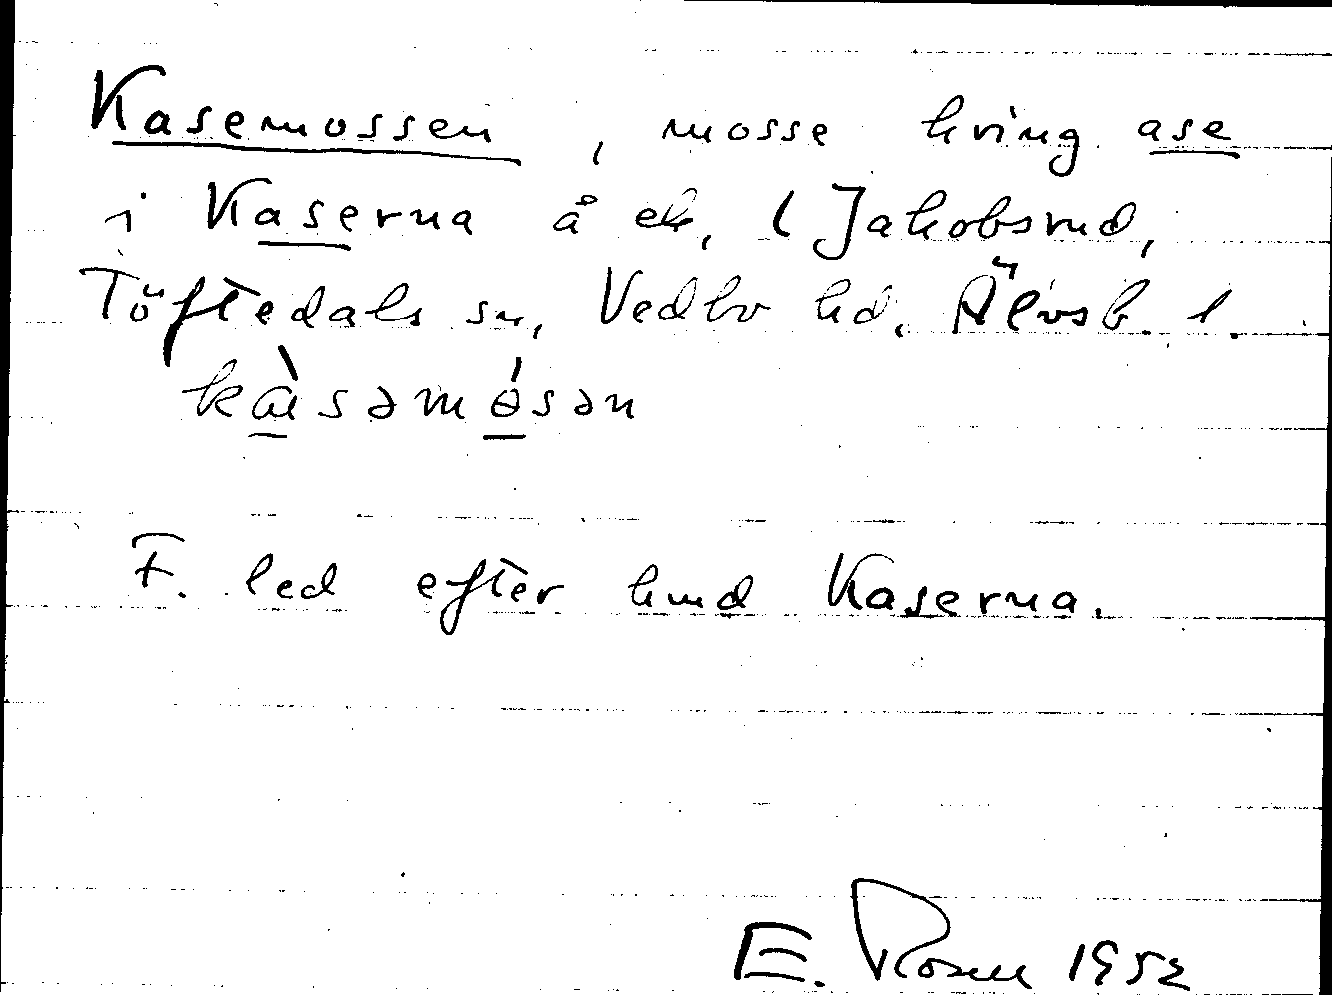 Kasemossen, mosse kring ase
i Kaserna å ek, (Jakobsrud,
Töftedals sn, Vedbo hd, Älvsb. l.
kàsəmósən
F. led efter hmd Kaserna.
E. Rosell 1952